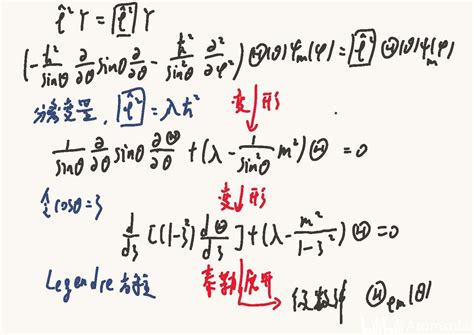 l̂² Y = l̂² Y
(-ℏ²/sinθ ∂/∂θ sinθ ∂/∂θ - ℏ²/sin²θ ∂²/∂φ²) Θ(θ)ψₘ(φ) = l̂² Θ(θ)ψₘ(φ)
分离变量, l̂² = λℏ² 变形
1/sinθ ∂/∂θ sinθ ∂Θ/∂θ + (λ - 1/sin²θ m²) Θ = 0
令cosθ=ξ 变形
d/dξ [(1-ξ²) dΘ/dξ] + (λ - m²/(1-ξ²)) Θ = 0
Legendre方程 级数展开
Θₗₘ(θ)